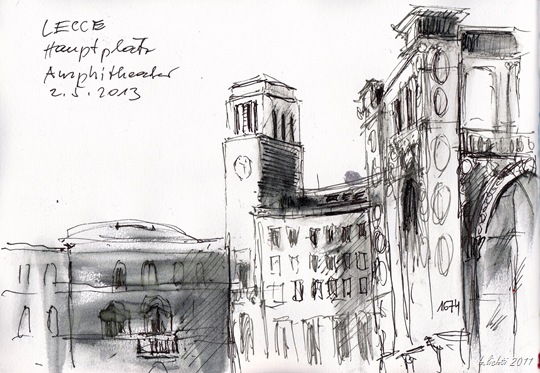 LECCE
Hauptplatz
Amphitheater
2.5.2013
1674
2011